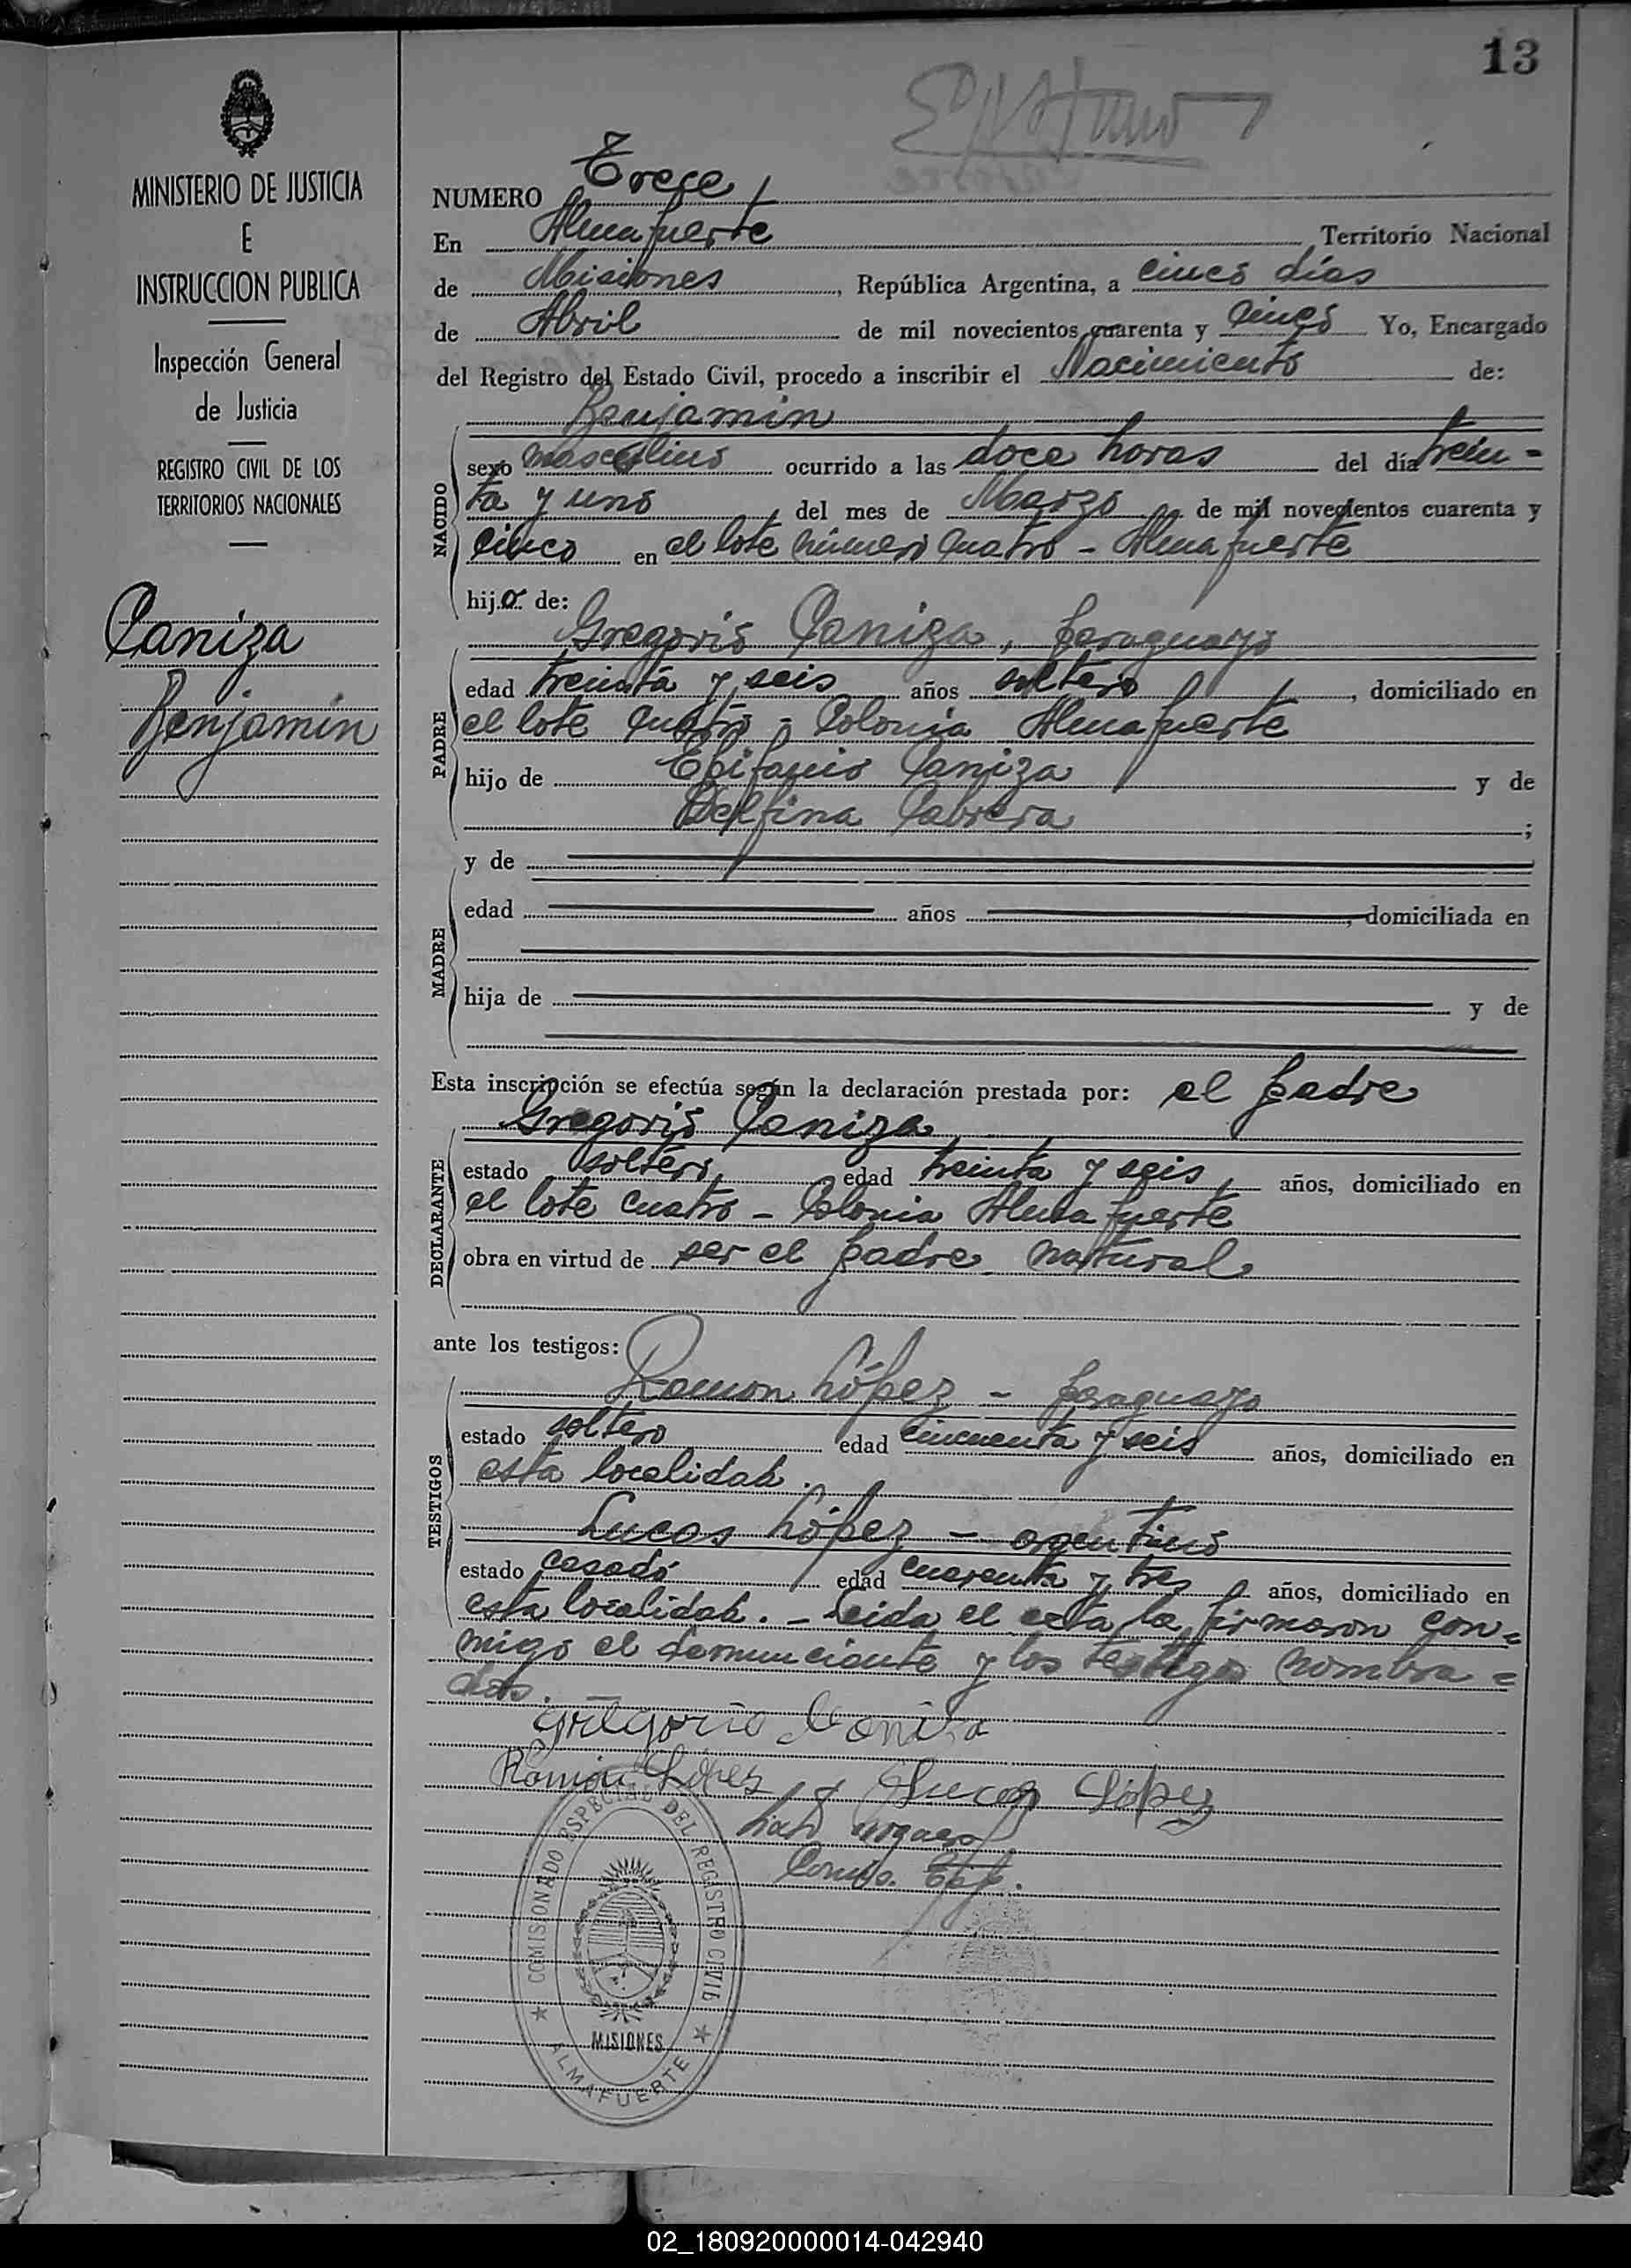 13
MINISTERIO DE JUSTICIA
E
INSTRUCCION PUBLICA
Inspección General
de Justicia
REGISTRO CIVIL DE LOS
TERRITORIOS NACIONALES
Caniza
Benjamin
NUMERO Trece
En Almafuerte Territorio Nacional
de Misiones, República Argentina, a cinco días
de Abril de mil novecientos cuarenta y cinco Yo, Encargado
del Registro del Estado Civil, procedo a inscribir el Nacimiento de:
Benjamin
NACIDO
sexo masculino ocurrido a las doce horas del día trein-
ta y uno del mes de Marzo de mil novecientos cuarenta y
cinco en el lote número cuatro - Almafuerte
hijo de:
Gregorio Caniza, paraguayo
PADRE
edad treinta y seis años soltero, domiciliado en
el lote cuatro - Colonia Almafuerte
hijo de Epifanio Caniza y de
Delfina Cabrera;
y de
MADRE
edad años, domiciliada en
hija de y de
Esta inscripción se efectúa según la declaración prestada por: el padre
Gregorio Caniza
DECLARANTE
estado soltero, edad treinta y seis, años, domiciliado en
el lote cuatro - Colonia Almafuerte
obra en virtud de ser el padre natural
ante los testigos:
Ramon López - paraguayo
TESTIGOS
estado soltero edad cincuenta y seis años, domiciliado en
esta localidad.
Lucas López - argentino
estado casado edad cuarenta y tres años, domiciliado en
esta localidad. - Leida el acta la firmaron con=
migo el denunciante y los testigos nombra=
dos. -
Gregorio Caniza
Ramon López Lucas López
Comis. Esp.
COMISIONADO ESPECIAL DEL REGISTRO CIVIL
MISIONES
ALMAFUERTE
02_180920000014-042940